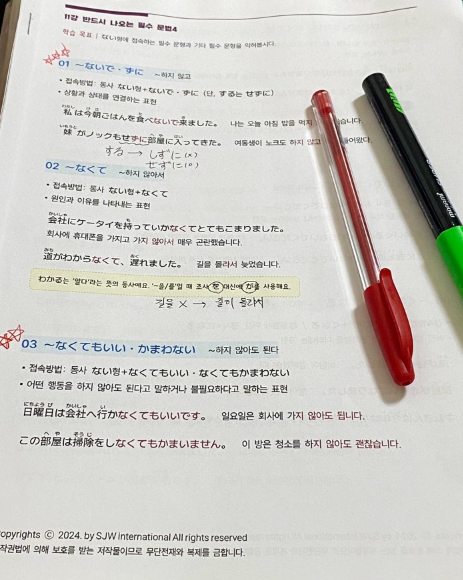 11강 반드시 나오는 필수 문법4
학습 목표 | ない형에 접속하는 필수 문형과 기타 필수 문형을 익혀봅시다.
01 ~ないで・ずに ~하지 않고
• 접속방법: 동사 ない형+ないで・ずに (단, する는 せずに)
• 상황과 상태를 연결하는 표현
私は今朝ごはんを食べないで来ました。 나는 오늘 아침 밥을 먹지
妹がノックもせずに部屋に入ってきた。 여동생이 노크도 하지 않고
する → しずに (x)
せずに (o)
02 ~なくて ~하지 않아서
• 접속방법: 동사 ない형+なくて
• 원인과 이유를 나타내는 표현
会社にケータイを持っていかなくてとてもこまりました。
회사에 휴대폰을 가지고 가지 않아서 매우 곤란했습니다.
道がわからなくて、遅れました。 길을 몰라서 늦었습니다.
わかる는 '알다'라는 뜻의 동사예요. '~을/를'일 때 조사 を 대신에 が를 사용해요.
길을 x → 길이 몰라서
03 ~なくてもいい・かまわない ~하지 않아도 된다
• 접속방법: 동사 ない형+なくてもいい・なくてもかまわない
• 어떤 행동을 하지 않아도 된다고 말하거나 불필요하다고 말하는 표현
日曜日は会社へ行かなくてもいいです。 일요일은 회사에 가지 않아도 됩니다.
この部屋は掃除をしなくてもかまいません。 이 방은 청소를 하지 않아도 괜찮습니다.
opyrights ⓒ 2024. by SJW International All rights reserved
작권법에 의해 보호를 받는 저작물이므로 무단전재와 복제를 금합니다.